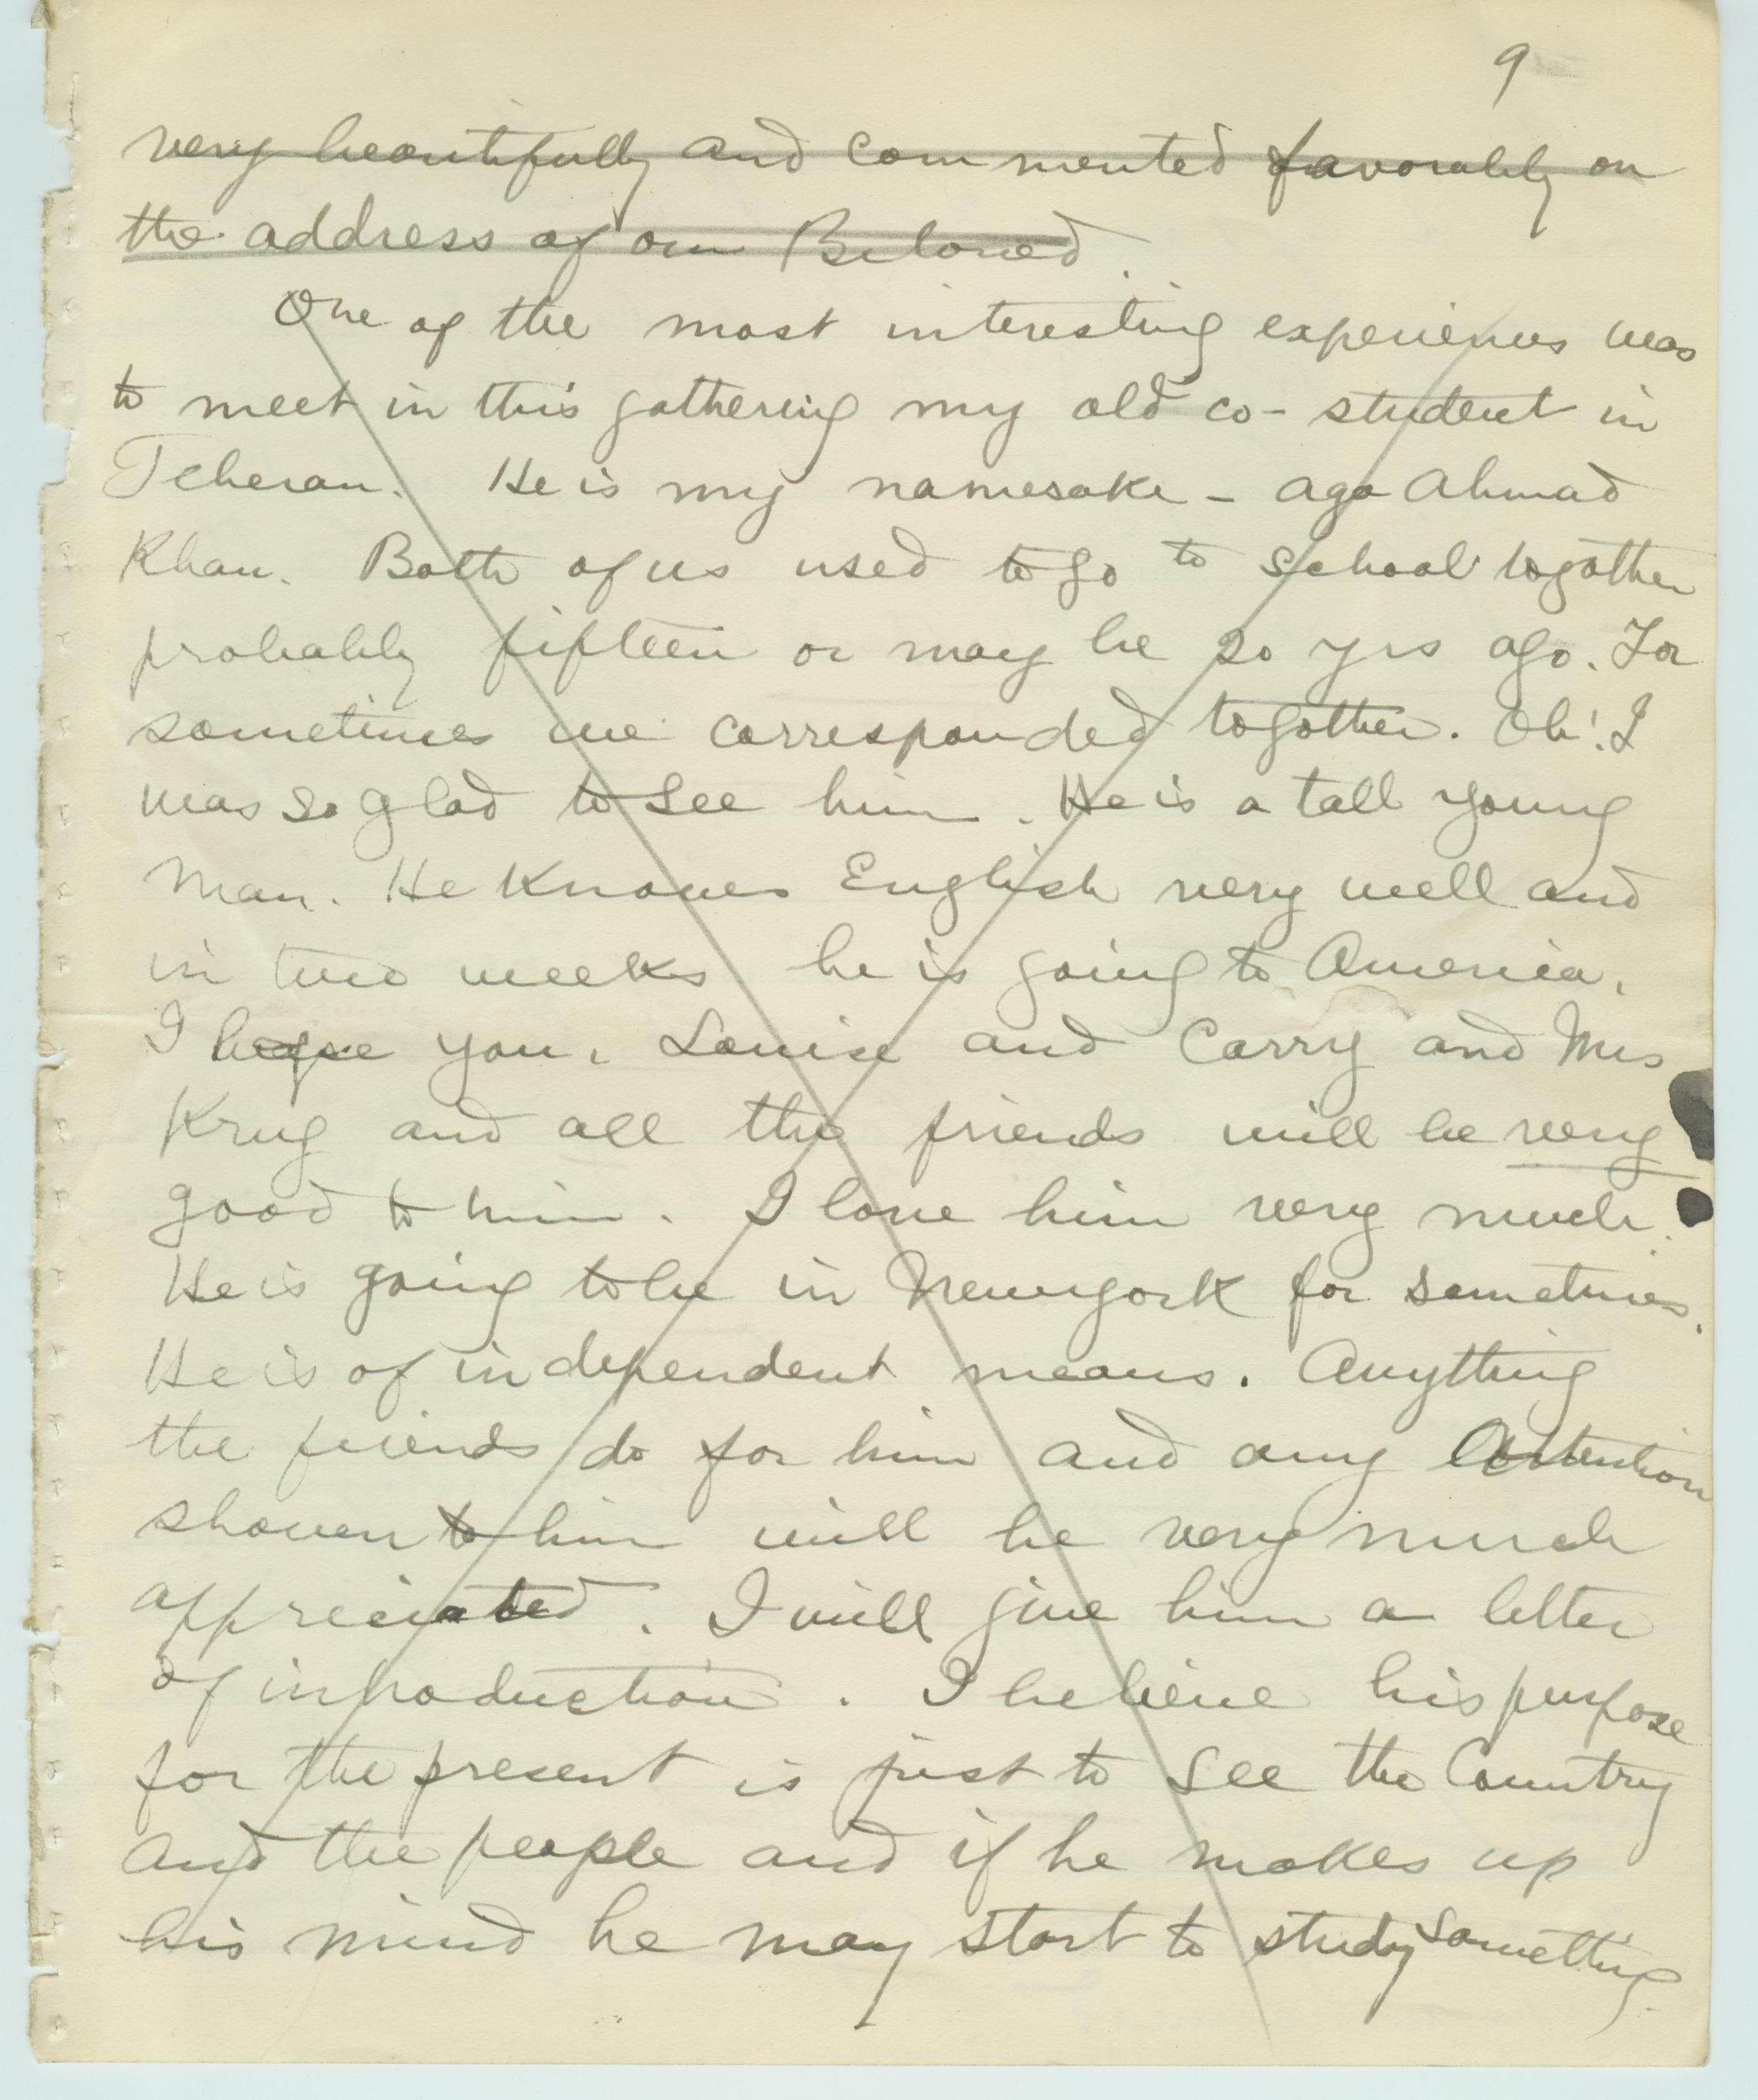 9
very beautifully and commented favorably on
the address of our Beloved.
One of the most interesting experiences was
to meet in this gathering my old co-student in
Teheran. He is my namesake - aga Ahmad
Khan. Both of us used to go to school togather
probably fifteen or may be 20 yrs ago. For
sometimes we corresponded togather. Oh! I
was so glad to see him. He is a tall young
man. He knows English very well and
in two weeks he is going to America.
I hope you, Louise and Carry and Mrs
Krug and all the friends will be very
good to him. I love him very much.
He is going to be in Newyork for sometimes.
He is of independent means. Anything
the friends do for him and any attention
shown to him will be very much
appreciated. I will give him a letter
of introduction. I believe his purpose
for the present is just to see the Country
and the people and if he makes up
his mind he may start to study something.